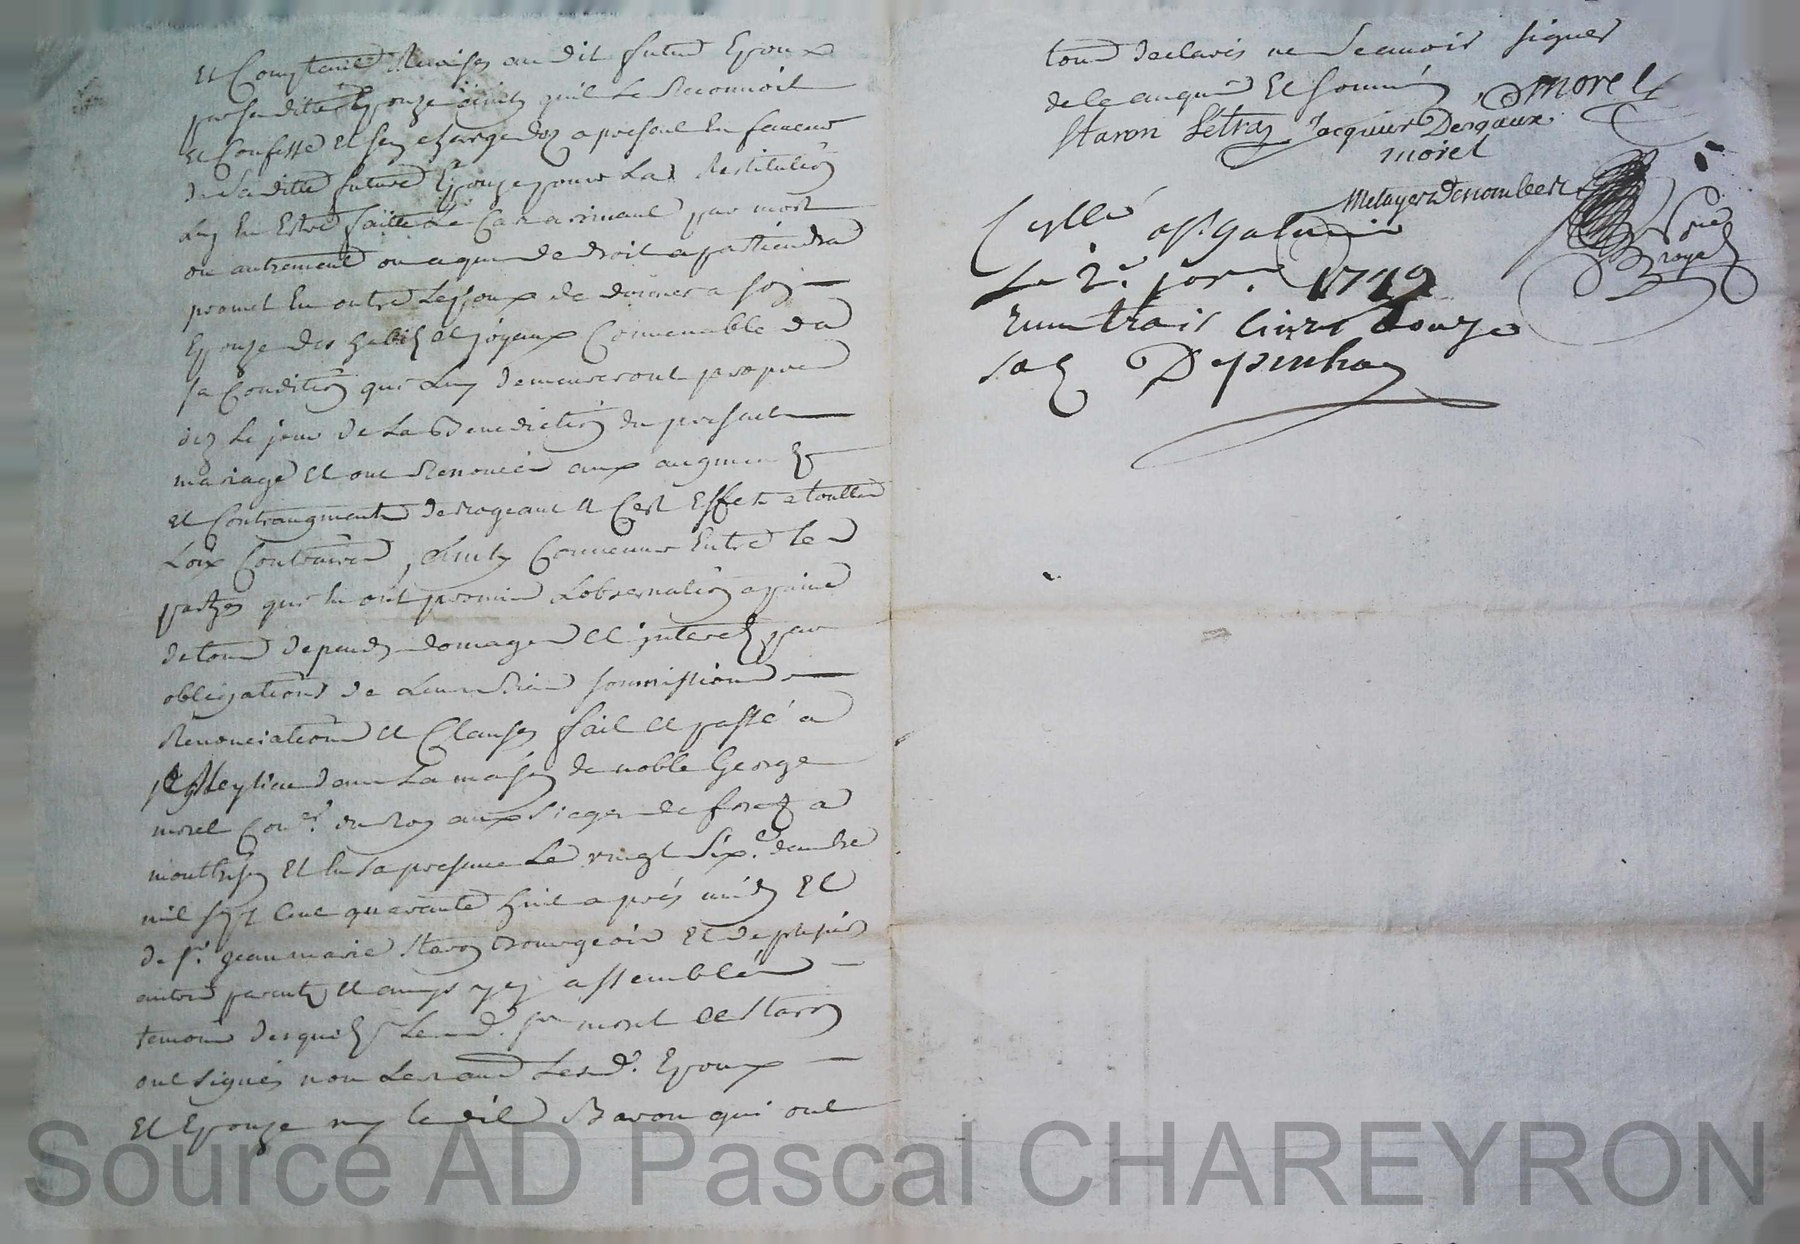 Et Comptent Remises au dit futur Epoux
par sa ditte Epouze ainsy quil le Reconnoit
Et Confesse Et sen charge dez a present En faveur
de La ditte future Epouze pour La Restitution
Luy En Estre faitte Le Cas arrivant par mort
ou autrement ou a qui de droit apartiendra
promet En outre Lepoux de donner a son
Epouze des habits et joyaux Convenable a
sa Condition qui Luy demeureront propre
dez Le jour de La Benediction du present
mariage et ont Renoncé aux augment
et Contraugment derogeant a Cest Effet a toutte
Loix Contraire, ainsy Convenu Entre les
partyes qui En ont promis Lobservation a paine
de tous depends domages et interets par
obligations de Leurs Biens soumissions
Renonciations et Clauses fait et passé a
dans La maison de noble George
morel Con.er du Roy aux sieges de forez a
montbrison Et En sa presence Le vingt six.e
mil sept Cent quarante huit après midy Et
de s.r jean marie Staron Bourgeois Et de plusieurs
autres parents et amys assemblés
temoins desquels Lesd. s.rs morel et Staron
ont signés non Lesd. Epoux
Et Epouze ny le dit Baron qui ont
tous declarés ne Scavoir signer
de ce enquis Et sommés Morel
Staron Jacquier Desgaux
morel
Metayer Denombert
Cellé a st galmier
Broye
Le 2.e jer. 1749
Reçu trois livres douze
sols Depinhac
Source AD Pascal CHAREYRON